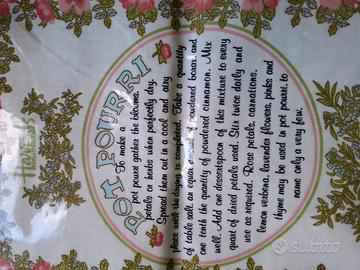 POT POURRI
To make a
pot pourri gather the blooms,
petals or herbs when perfectly dry.
Spread them out in a cool and airy
place until the drying is completed. Take a quantity
of table salt, an equal amount of powdered borax, and
one tenth the quantity of powdered cinnamon. Mix
well. Add one dessertspoon of this mixture to every
quart of dried petals used. Stir twice daily and
use as required. Rose petals, carnations,
lemon verbena, lavender flowers, pinks and
thyme may be used in pot pourri, to
name only a very few.
subito